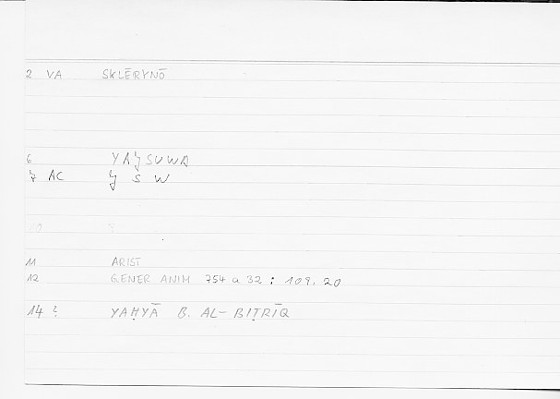 2 VA SKLĒRYNŌ
6 YAǦSUWA
7 AC Ǧ S W
11 ARIST
12 GENER ANIM 754 a 32 : 109.20
14 2 YAḤYĀ B. AL-BIṬRĪQ